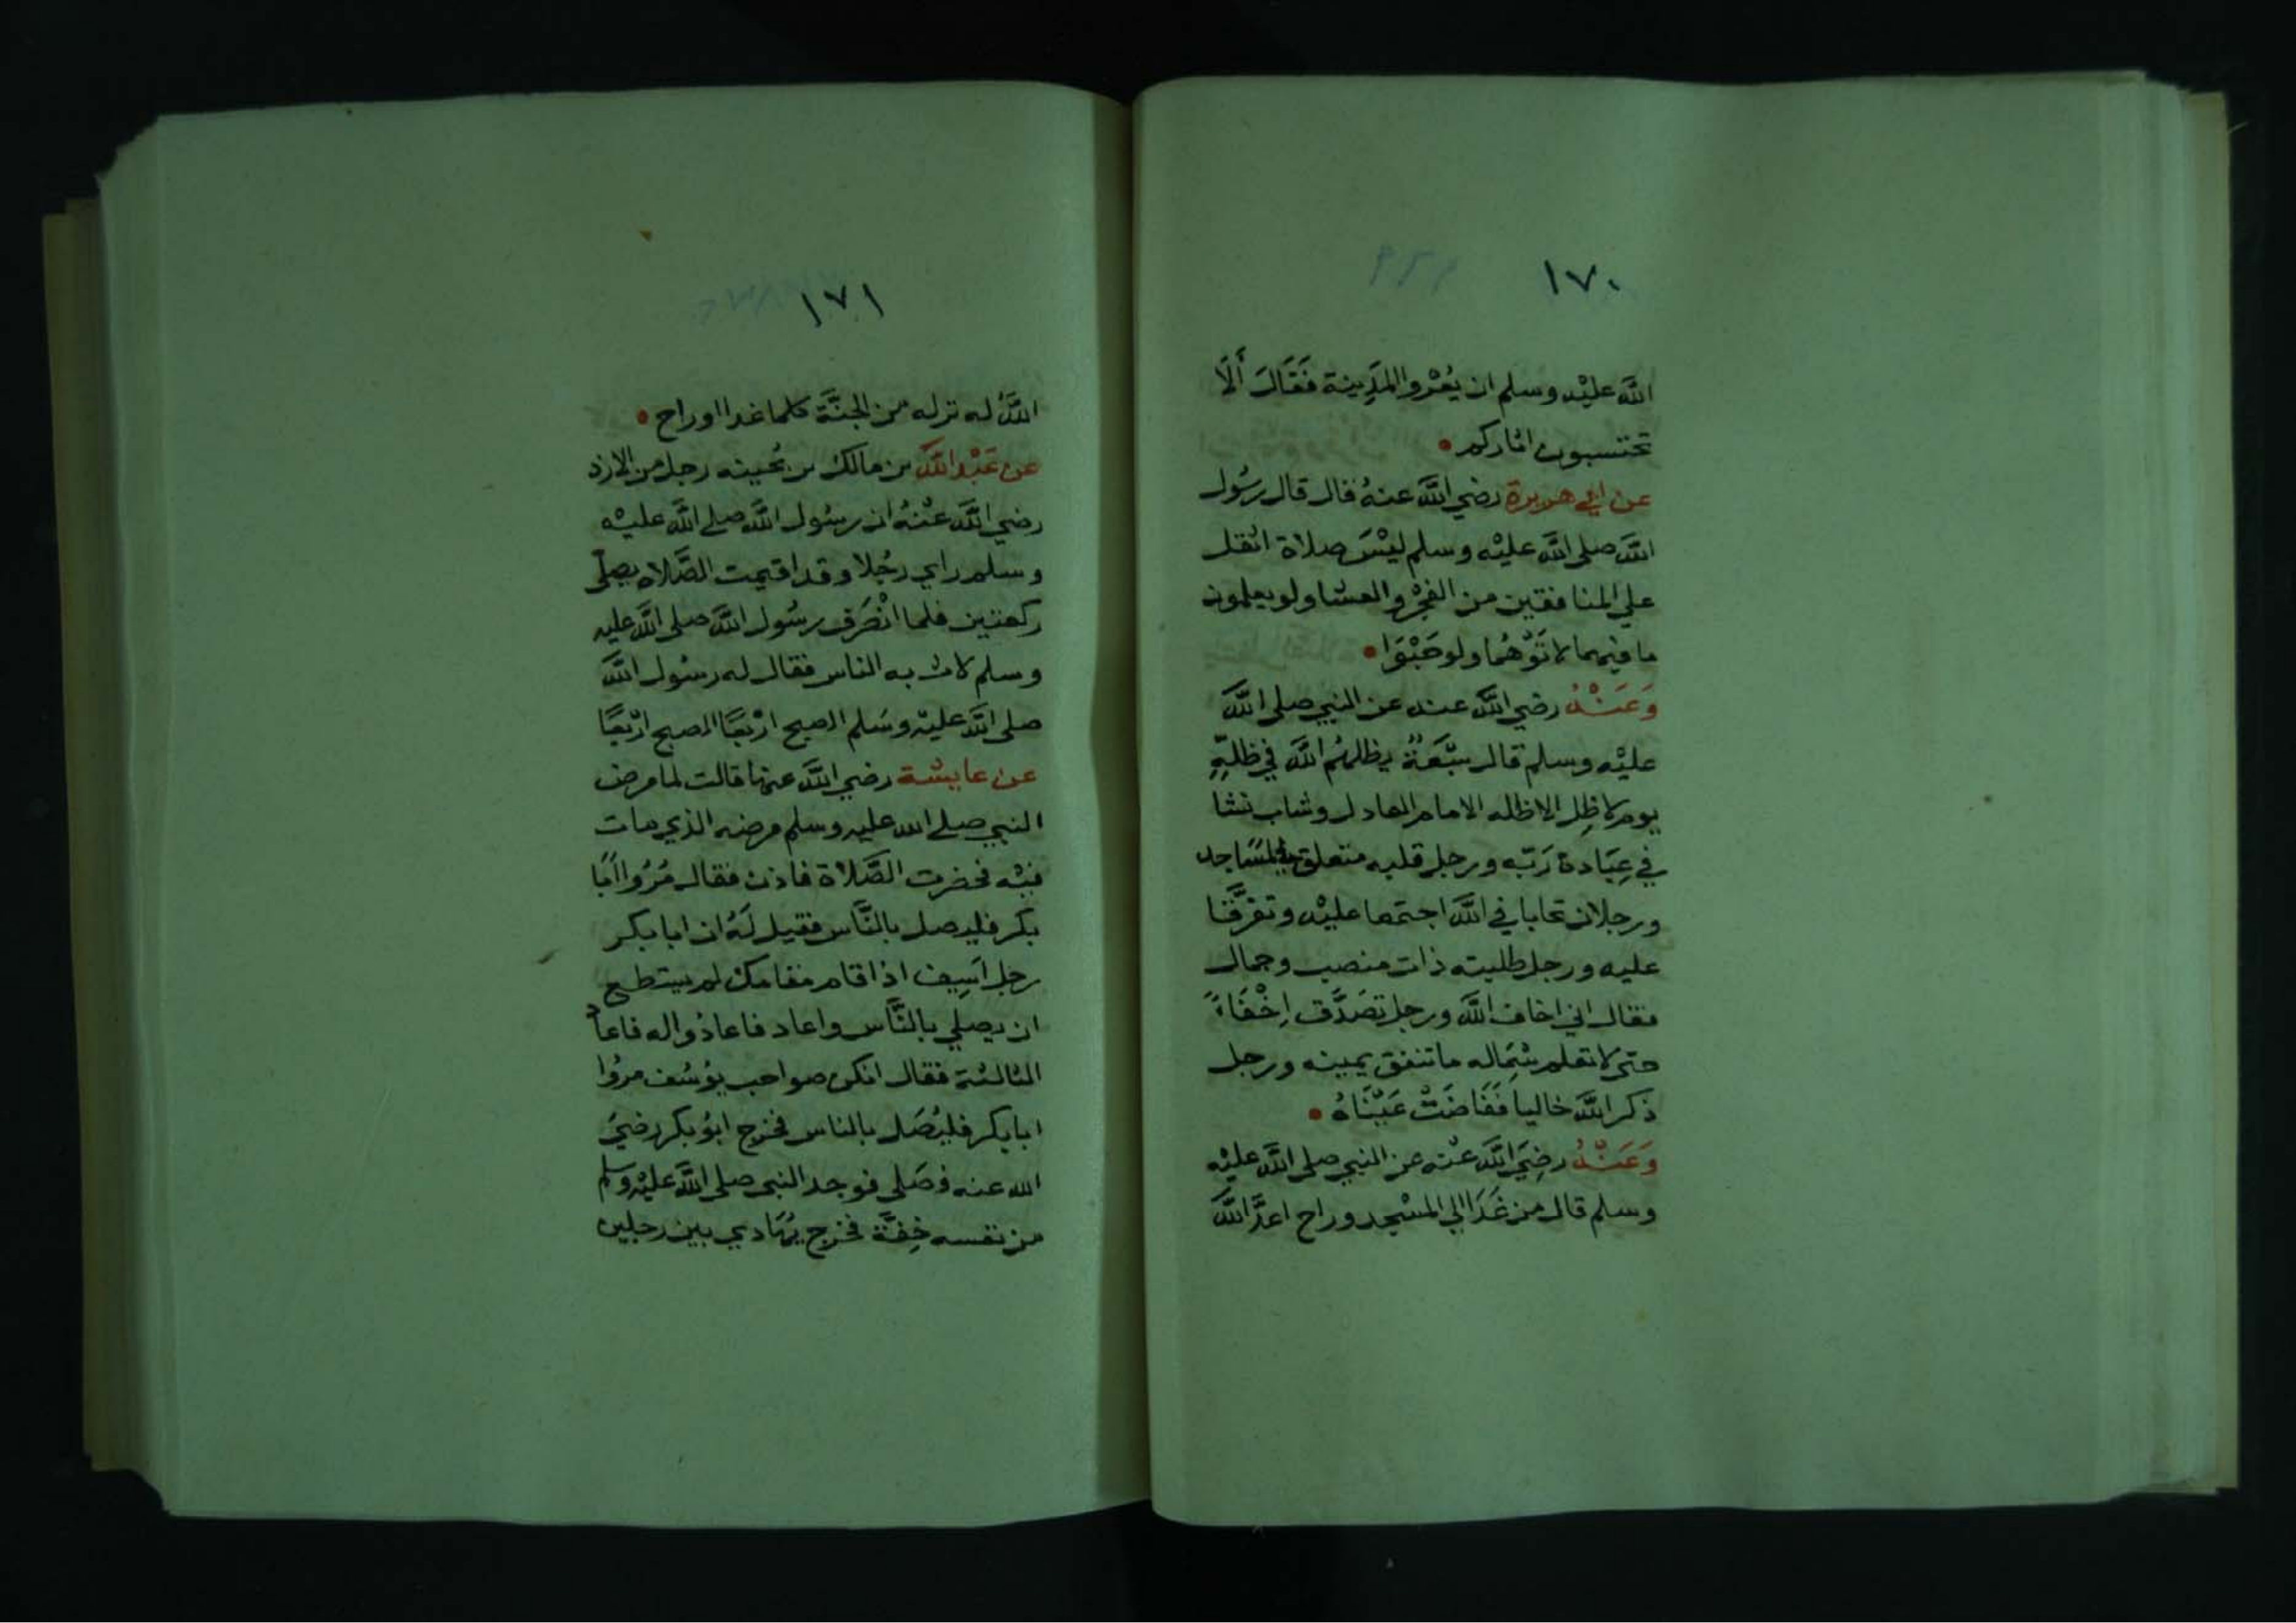 ١٧٠
اللَّه عليْه وسلم ان يُعْروا المَدِينة فَقَالَ أَلَا
تحتسبون اثاركم
عن ابي هريرة رضي اللَّه عنهُ قال قال رسُول
اللَّه صلى اللَّه عليْه وسلم ليْسَ صلاة اثقل
علي المنافقين من الفجْر والعشا ولو يعلمون
ما فيهما لاتَوْهُما ولو حَبْوَا
وَعَنْهُ رضي اللَّه عنه عن النبي صلى اللَّه
عليْه وسلم قال سَبْعَةٌ يظلهُم اللَّه في ظلِّهِ
يوم لا ظِل الا ظله الامام العادل وشاب نشا
في عِبَادة رَبّه ورجل قلبه متعلق في المسَاجد
ورجلان تحابا في اللَّه اجتمعا عليْه وتفرَّقا
عليه ورجل طلبته ذات منصب وجمال
فقال اني اخاف اللَّه ورجل تصَدَّق اِخْفَاءً
حتى لا تعلم شِمَاله ما تنفق يمينه ورجل
ذكر اللَّه خاليا فَفَاضَتْ عَيْنَاهُ
وَعَنْهُ رضِيَ اللَّه عنْه عن النبي صلى اللَّه عليْه
وسلم قال من غَدَا الي المسْجد وراح اعدَّ اللَّه
١٧١
اللَّهُ له نزله من الجنَّة كلما غدا او راح
عن عَبْد اللَّه بن مالك بن بُحينه رجل من الازد
رضي اللَّه عنْهُ ان رسُول اللَّه صلى اللَّه عليْه
وسلم راي رجُلا وقد اقيمت الصَّلاه يصلّى
ركعتين فلما انْصَرَف رسُول اللَّه صلى اللَّه عليه
وسلم لاث به الناس فقال له رسُول اللَّه
صلى اللَّه عليْه وسَلم الصبح ارْبَعًا الصبح ارْبعًا
عن عايشة رضي اللَّه عنها قالت لما مرض
النبي صلى الله عليه وسلم مرضه الذي مات
فيْه فحضرت الصَّلاة فاذن فقال مُرُوا اَبَا
بكر فليصل بالنَّاس فقيل لَهُ ان ابا بكر
رجل اَسِيف اذا قام مقامك لم يستطع
ان يصلي بالنَّاس واعاد فاعاذوا له فاعاد
الثالثة فقال انكن صواحب يوُسُف مروُا
ابا بكر فليُصَل بالناس فخرج ابوُ بكر رضيَ
الله عنه فصَلى فوجد النبي صلى اللَّه عليْه وسلم
من نفسه خِفَّة فخرج يُهَادي بين رجلين